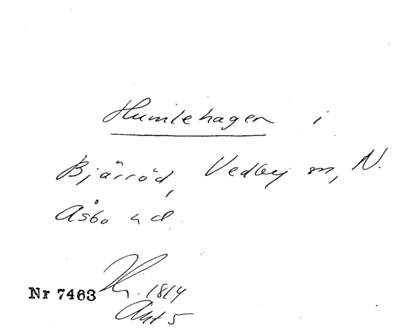 Humlehagen i
Bjärröd, Vedby sn, N.
Åsbo hd.
Nr 7463
1814
Akt 5